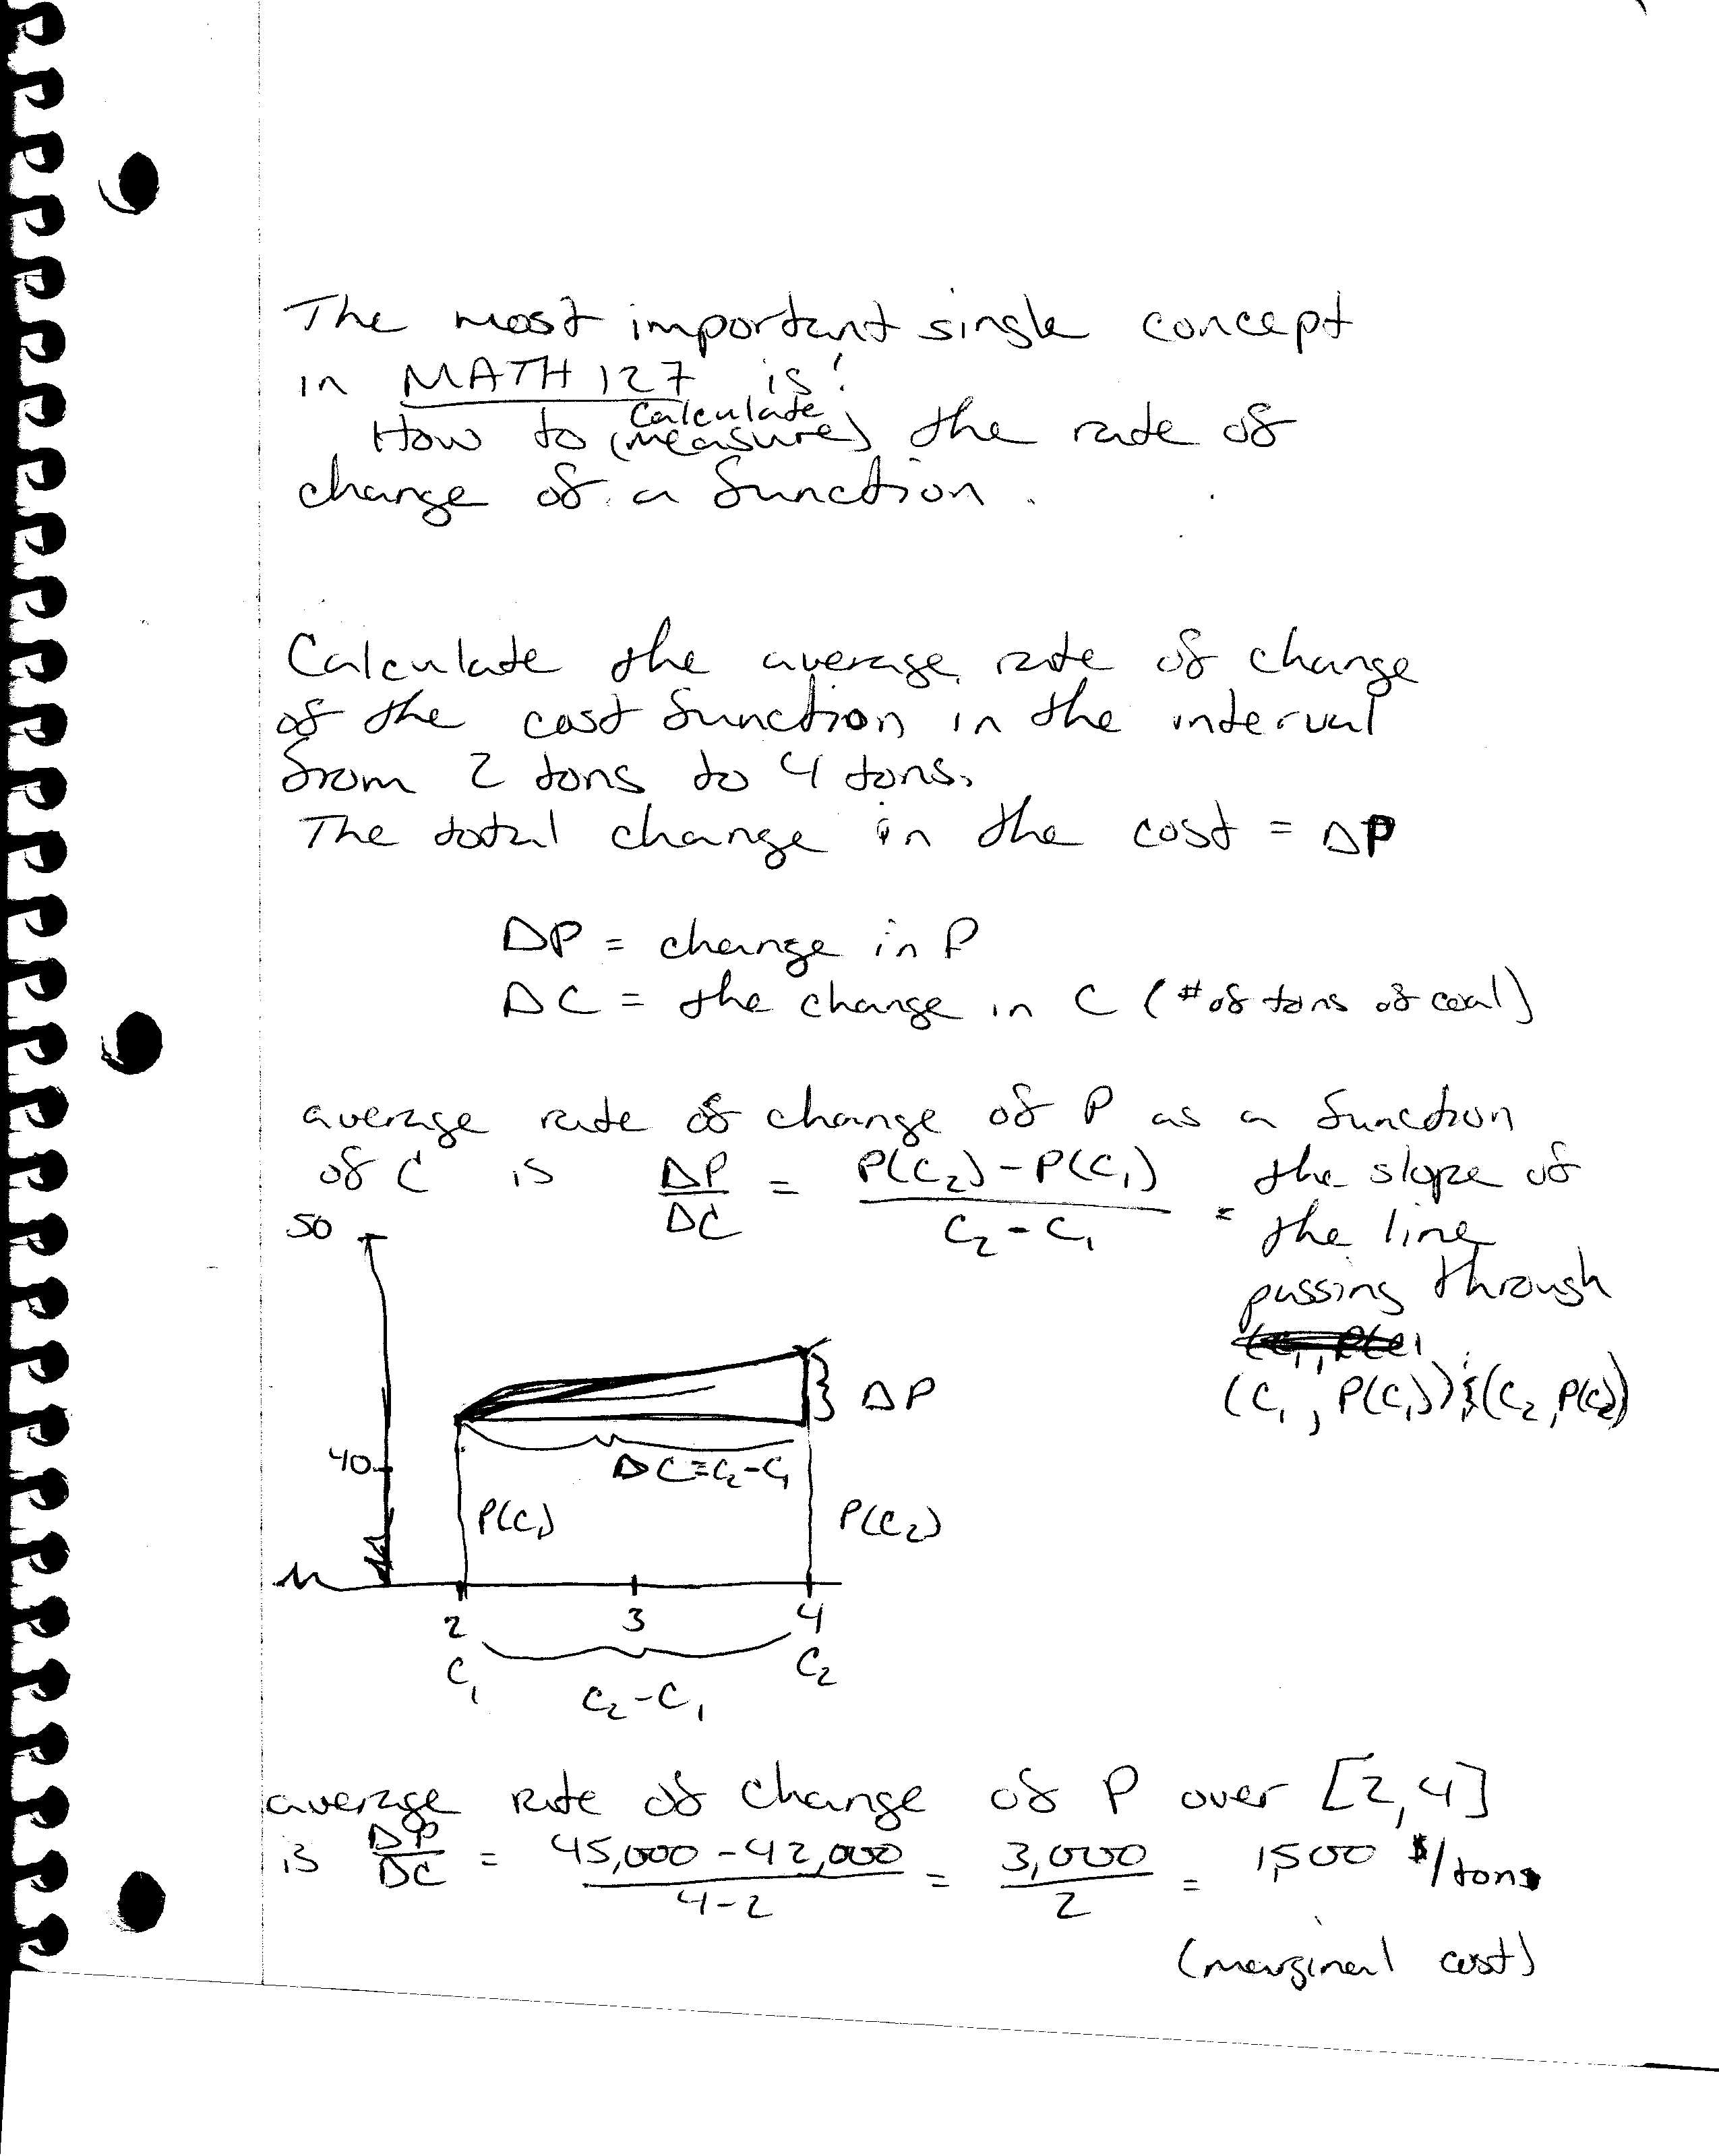 The most important single concept
in MATH 127 is:
Calculate
How to (measure) the rate of
change of a function.
Calculate the average rate of change
of the cost function in the interval
from 2 tons to 4 tons.
The total change in the cost = ΔP
ΔP = change in P
ΔC = the change in C (# of tons of coal)
average rate of change of P as a function
of C is ΔP/ΔC = P(C₂) - P(C₁) / C₂ - C₁ = the slope of
the line
passing through
(C₁, P(C₁)) & (C₂, P(C₂))
50
ΔP
40
ΔC = C₂ - C₁
P(C₁)
P(C₂)
2 3 4
C₁ C₂
C₂ - C₁
average rate of change of P over [2,4]
is ΔP/ΔC = 45,000 - 42,000 / 4 - 2 = 3,000 / 2 = 1,500 $/ton
(marginal cost)